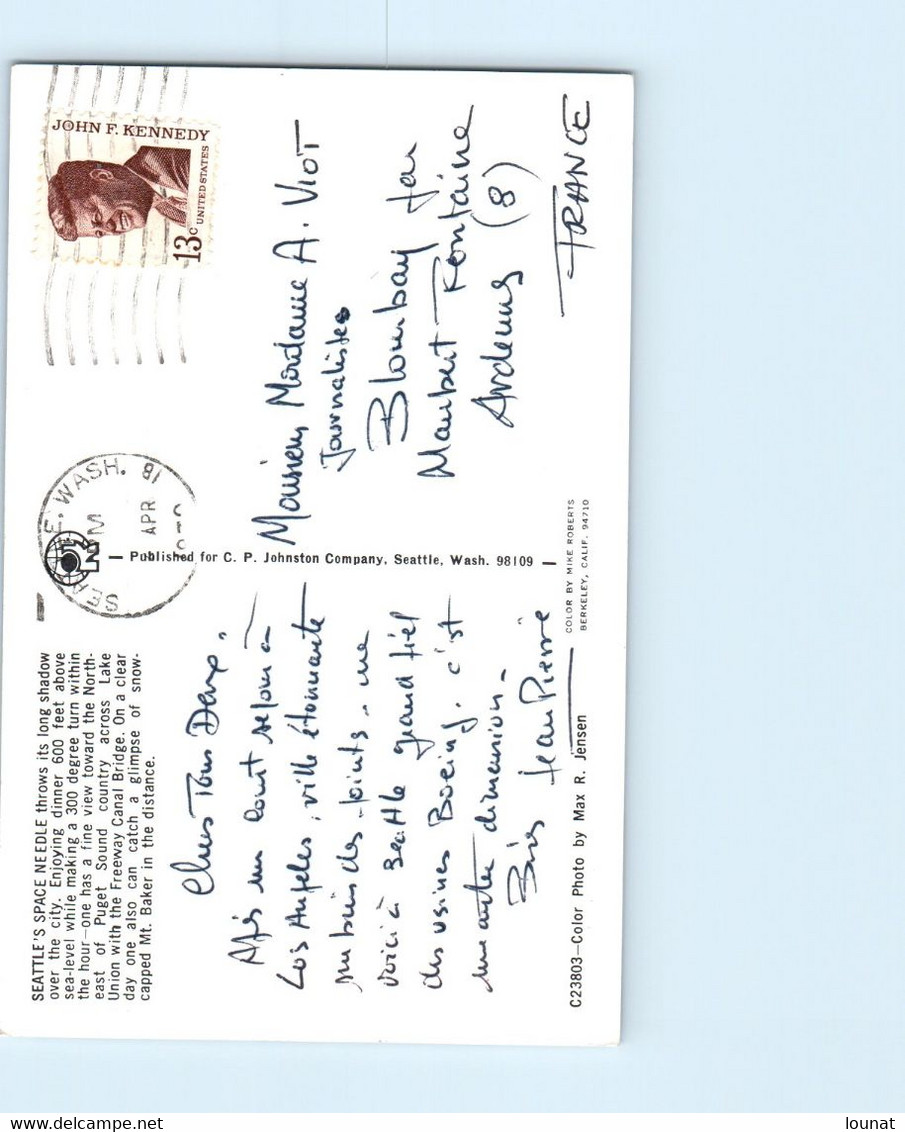 SEATTLE'S SPACE NEEDLE throws its long shadow
over the city. Enjoying dinner 600 feet above
sea-level while making a 300 degree turn within
the hour—one has a fine view toward the North-
east of Puget Sound country across Lake
Union with the Freeway Canal Bridge. On a clear
day one also can catch a glimpse of snow-
capped Mt. Baker in the distance.
Chers Tous Deux,
Après un court séjour à
Los Angeles, ville étonnante
me
voici à Seattle grand fief
des usines Boeing. c'est
une autre dimension -
Bises Jean Pierre
C23803—Color Photo by Max R. Jensen
— Published for C. P. Johnston Company, Seattle, Wash. 98109 —
COLOR BY MIKE ROBERTS
BERKELEY, CALIF. 94710
WASH.
PM
APR
18
JOHN F. KENNEDY
13c UNITED STATES
Monsieur Madame A. VIOT
Journalistes
Blombay par
Maubert Fontaine
Ardennes (8)
FRANCE
lounat